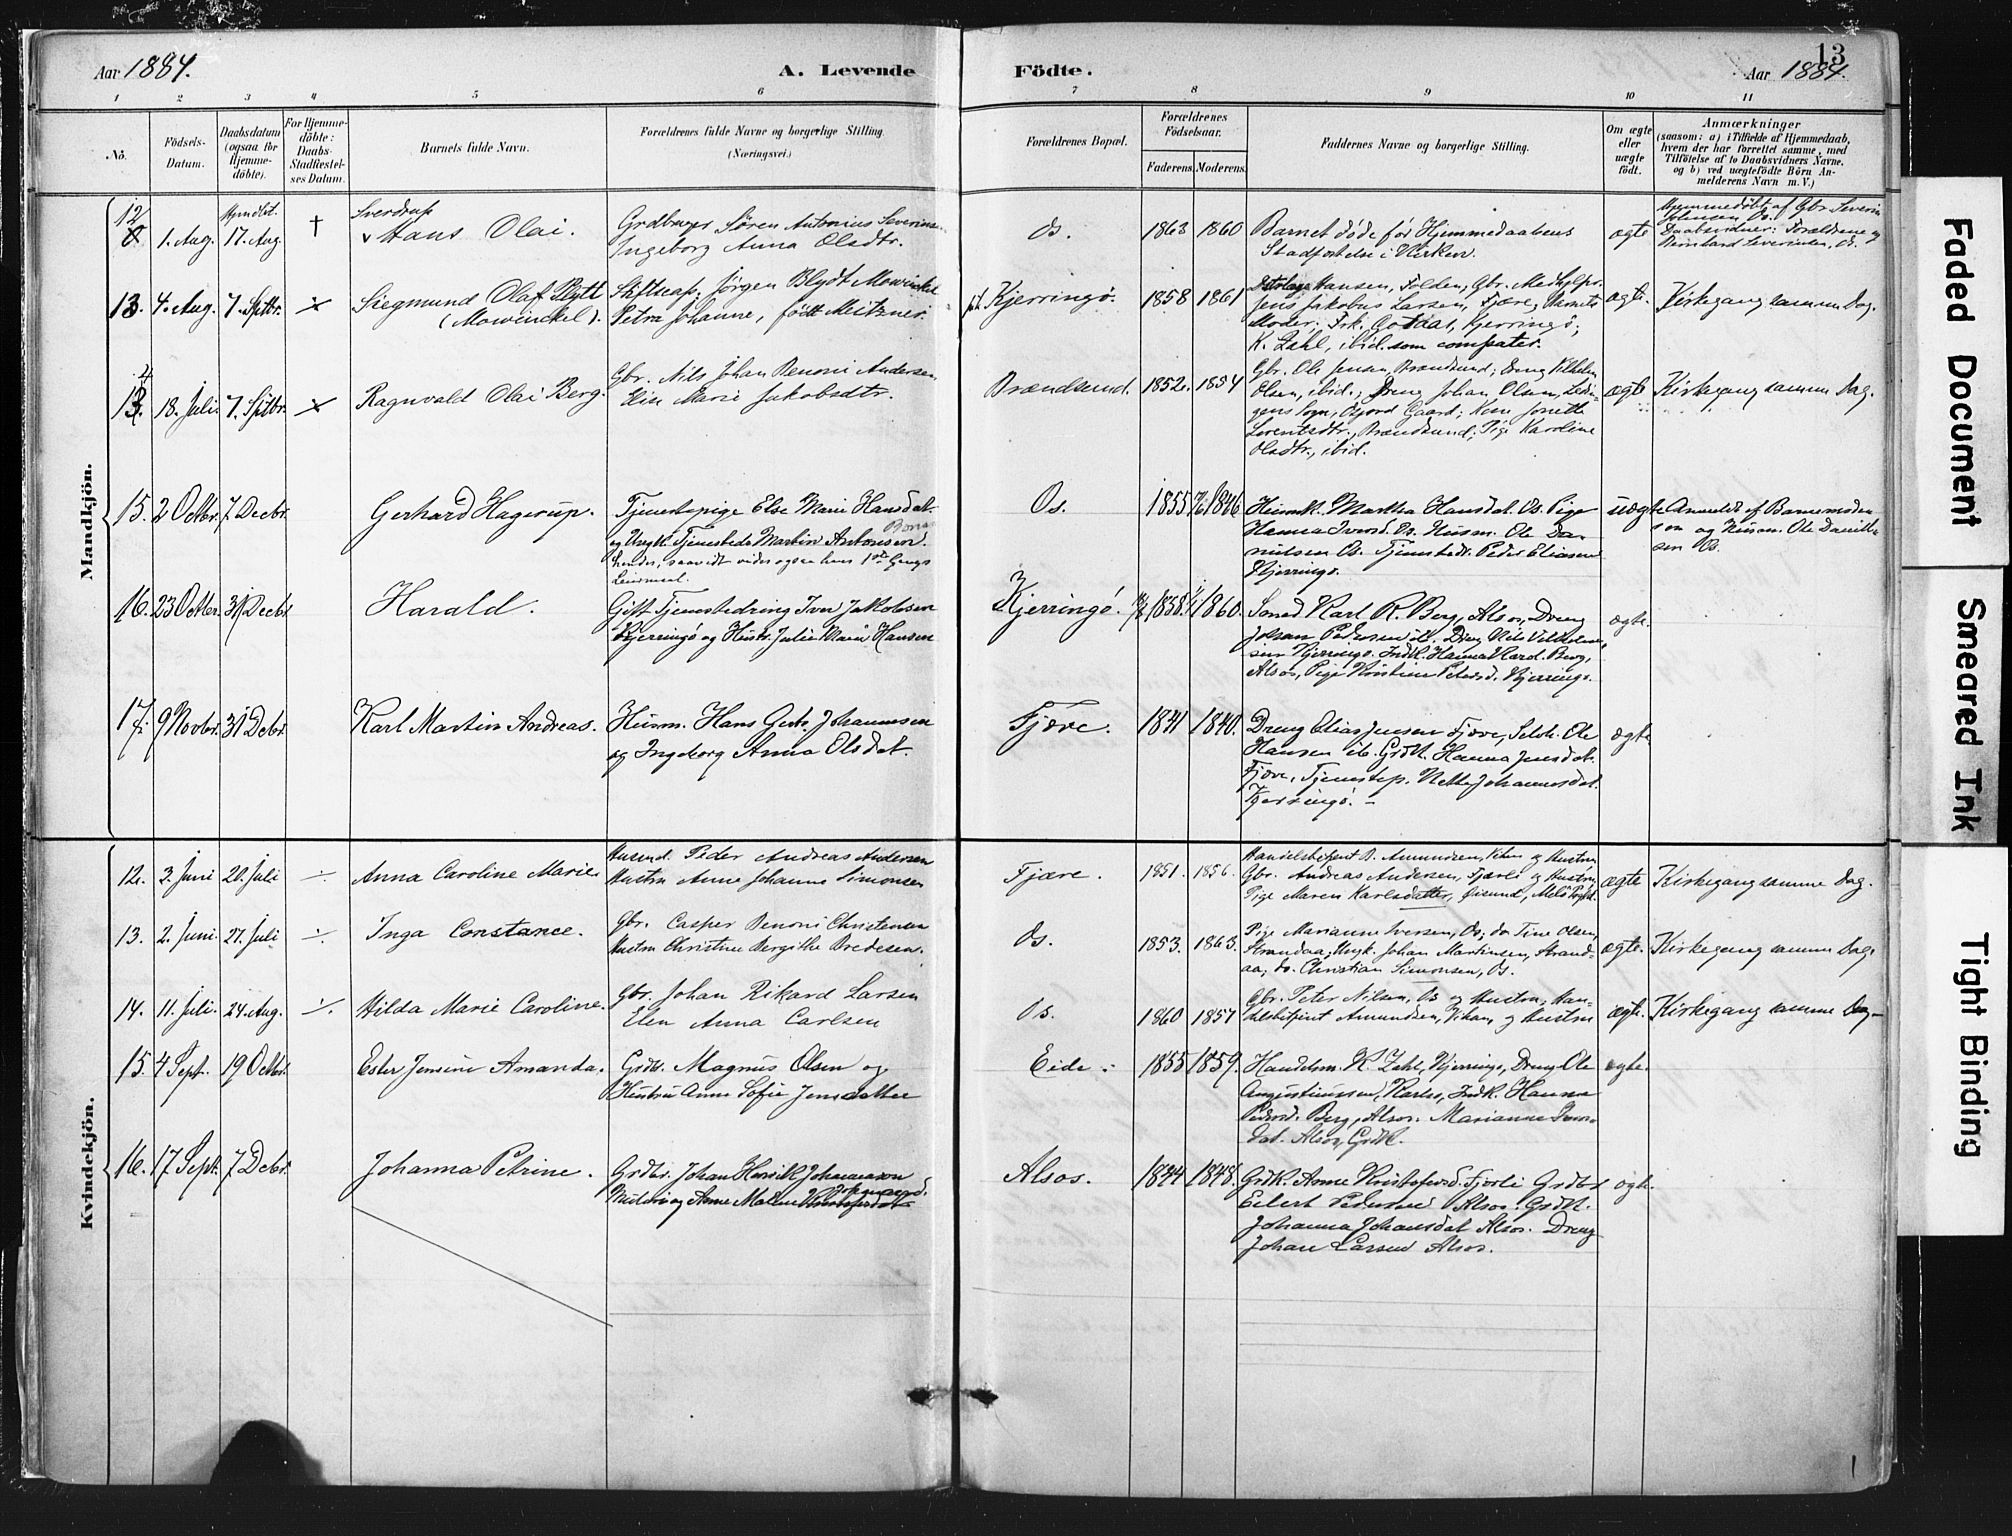 Aar 1884.
A. Levende
Födte.
13
Aar 1884.
1 2 3 4 5 6 7 8 9 10 11
No.
Födsels-
Datum.
Daabsdatum
(ogsaa for
Hjemme-
döbte).
For Hjemme-
döbte:
Daabs-
Stadfæstel-
ses Datum.
Barnets fulde Navn.
Forældrenes fulde Navne og borgerlige Stilling.
(Næringsvei.)
Forældrenes Bopæl.
Forældrenes
Födselsaar.
Faderens. Moderens.
Faddernes Navne og borgerlige Stilling.
Om ægte
eller
uægte
födt.
Anmærkninger
(saasom: a) i Tilfælde af Hjemmedaab,
hvem der har forrettet samme, med
Tilföielse af to Daabsvidners Navne,
og b) ved uægtefödte Börn An-
melderens Navn m. V.)
Mandkjön.
12
1. Aug.
Hjmdbt.
17. Aug.
†
Sverdrup
Hans Olai.
Grdbruger Søren Antonius
Ingeborg Anna Olsdtr.
Os.
1863 1860
Barnet døde før Hjemmedaabens
Stadfæstelse i Kirken.
ægte
Hjemmedøbt af Gbr. Severin
Johnsen, Os.
Daabsvidner: Forældrene og
Bernhard Severinsen, Os.
13. 4. Aug. 7. Sptbr.
Siegmund Olaf Plytt
(Mowinckel).
Stiftscap. Jørgen Blydt Mowinckel
Petra Johanne, født Meitzner.
Kjerringø.
1858 1861
Hansen, Folden, Gbr.
Jens Jakobus Larsen, Fjære, Barnets
Moder; Frk. Gotaas, Kjerringø;
K. Zahl, ibid. som compater.
ægte.
Kirkegang samme Dag.
14
18. Juli 7. Sptbr.
Ragnvald Olai Berg.
Gbr. Nils Johan Benoni Andersen
Elise Marie Jakobsdtr.
Brændsund.
1852. 1854
Gbr. Ole Jensen Brændsund; Dreng Vilhelm
Olsen, ibid.; Dreng Johan Olsen, Lødin-
gens Sogn, Gaard; Kone
Brændsund; Pige Karoline
Olsdtr., ibid.
ægte
Kirkegang samme Dag.
15. 2 Octbr. 7 Decbr.
Gerhard Hagerup.
Tjenestepige Else Marie Hansdat.
og Ungk. Tjenestedr. Martin Antonsen
hendes, saavidt vides ogsaa hans 1ste Gangs
Leiermaal.
Os.
1855 1846
Huusmk. Martha Hansdat. Os. Pige
Hanna Os. Husm. Ole Da-
nielsen Os. Tjenestedr. Peder Eliassen
Kjerringø.
uægte
Anmeldt af Barnemoderen
og Husm. Ole Daniel-
sen Os.
16. 23 Octbr. 31 Decbr.
Harald.
Gift Tjenestedreng Iver Jakobsen
Kjerringø og Hustr. Julie Marie Hansen
Kjerringø.
1858. 1860.
Karl R. Berg, Alsos, Dreng
Johan Pedersen ib. Dreng Nils Vilhelm-
sen Kjerringø. Indk. Hanna Berg,
Alsos, Pige Kristine Kjerringø.
ægte.
17. 9 Novbr. 31 Debr.
Karl Martin Andreas.
Husm. Hans Gerh. Johannsen
og Ingeborg Anna Olsdat.
Fjære.
1841 1840.
Dreng Elias Jensen Fjære, Selvk. Ole
Hansen ib. Grdk. Hanna Jensdat.
Fjære, Tjenestep. Netta Johannesdat.
Kjerringø. –
ægte
Kvindekjön.
12. 3. Juni 20. Juli
Anna Caroline Marie.
Husmd. Peder Andreas Andersen
Hustru Anne Johanne Simonsen
Fjære.
1851. 1856.
Handelsbetjent B. Amundsen, Vikan og Hustru,
Gbr. Andreas Andersen, Fjærli og Hustru,
Pige Maren Karlsdatter,
ægte
Kirkegang samme Dag.
13. 2. Juni. 27. Juli
Inga Constance.
Gbr. Casper Benoni Christensen
Hustru Christine Bergithe Bredesen.
Os.
1853. 1863.
Pige Marianne Iversen, Os; do Tine Olsen,
Strandaa; Ungk. Johan Martinsen, Strand-
aa; do. Christian Simonsen, Os.
ægte.
Kirkegang samme Dag.
14. 11. Juli. 24. Aug.
Hilda Marie Caroline.
Gbr. Johan Rikard Larsen
Elen Anna Carlsen
Os.
1860 1857
Gbr. Peter Nilsen, Os og Hustru; Han-
delsbetjent Amundsen, Vikan, og Hustru
ægte.
Kirkegang samme Dag.
15. 4 Sept. 19 Octbr.
Ester Jensine Amanda.
Grdbr. Magnus Olsen og
Hustru Anne Sofie Jensdatter
Eide.
1855 1859.
Handelsm. K. Zahl, Kjerringø, Dreng Ole
Augustinussen, Karlsø, Indk. Hanna
Pedersd. Berg, Alsos. Marianne Ivers-
dat. Alsos, Grdk.
ægte.
16. 17 Sept. 7 Debr.
Johanna Petrine.
Grdbr. Johan Henrik Johannesen
Hustru og Anne Malene
Alsos.
1844 1848.
Grdk. Anne Kristofersd. Fjærli Grdbr
Eilert Pedersen Alsos. Grdk.
Johanna Johansdat Alsos. Dreng
Johan Larsen Alsos.
ægte.
Faded Document
Smeared Ink
Tight Binding